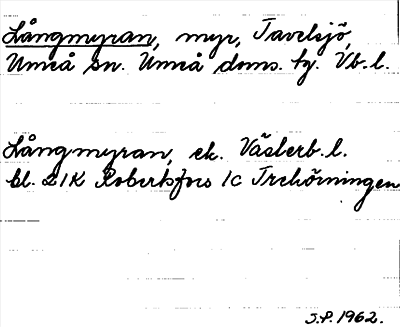 Långmyran, myr, Tavelsjö,
Umeå sn. Umeå doms. tg. Vb. l.
Långmyran, ek. Västerb. l.
bl. 21K Robertsfors 1c Trehörningen
S.P. 1962.